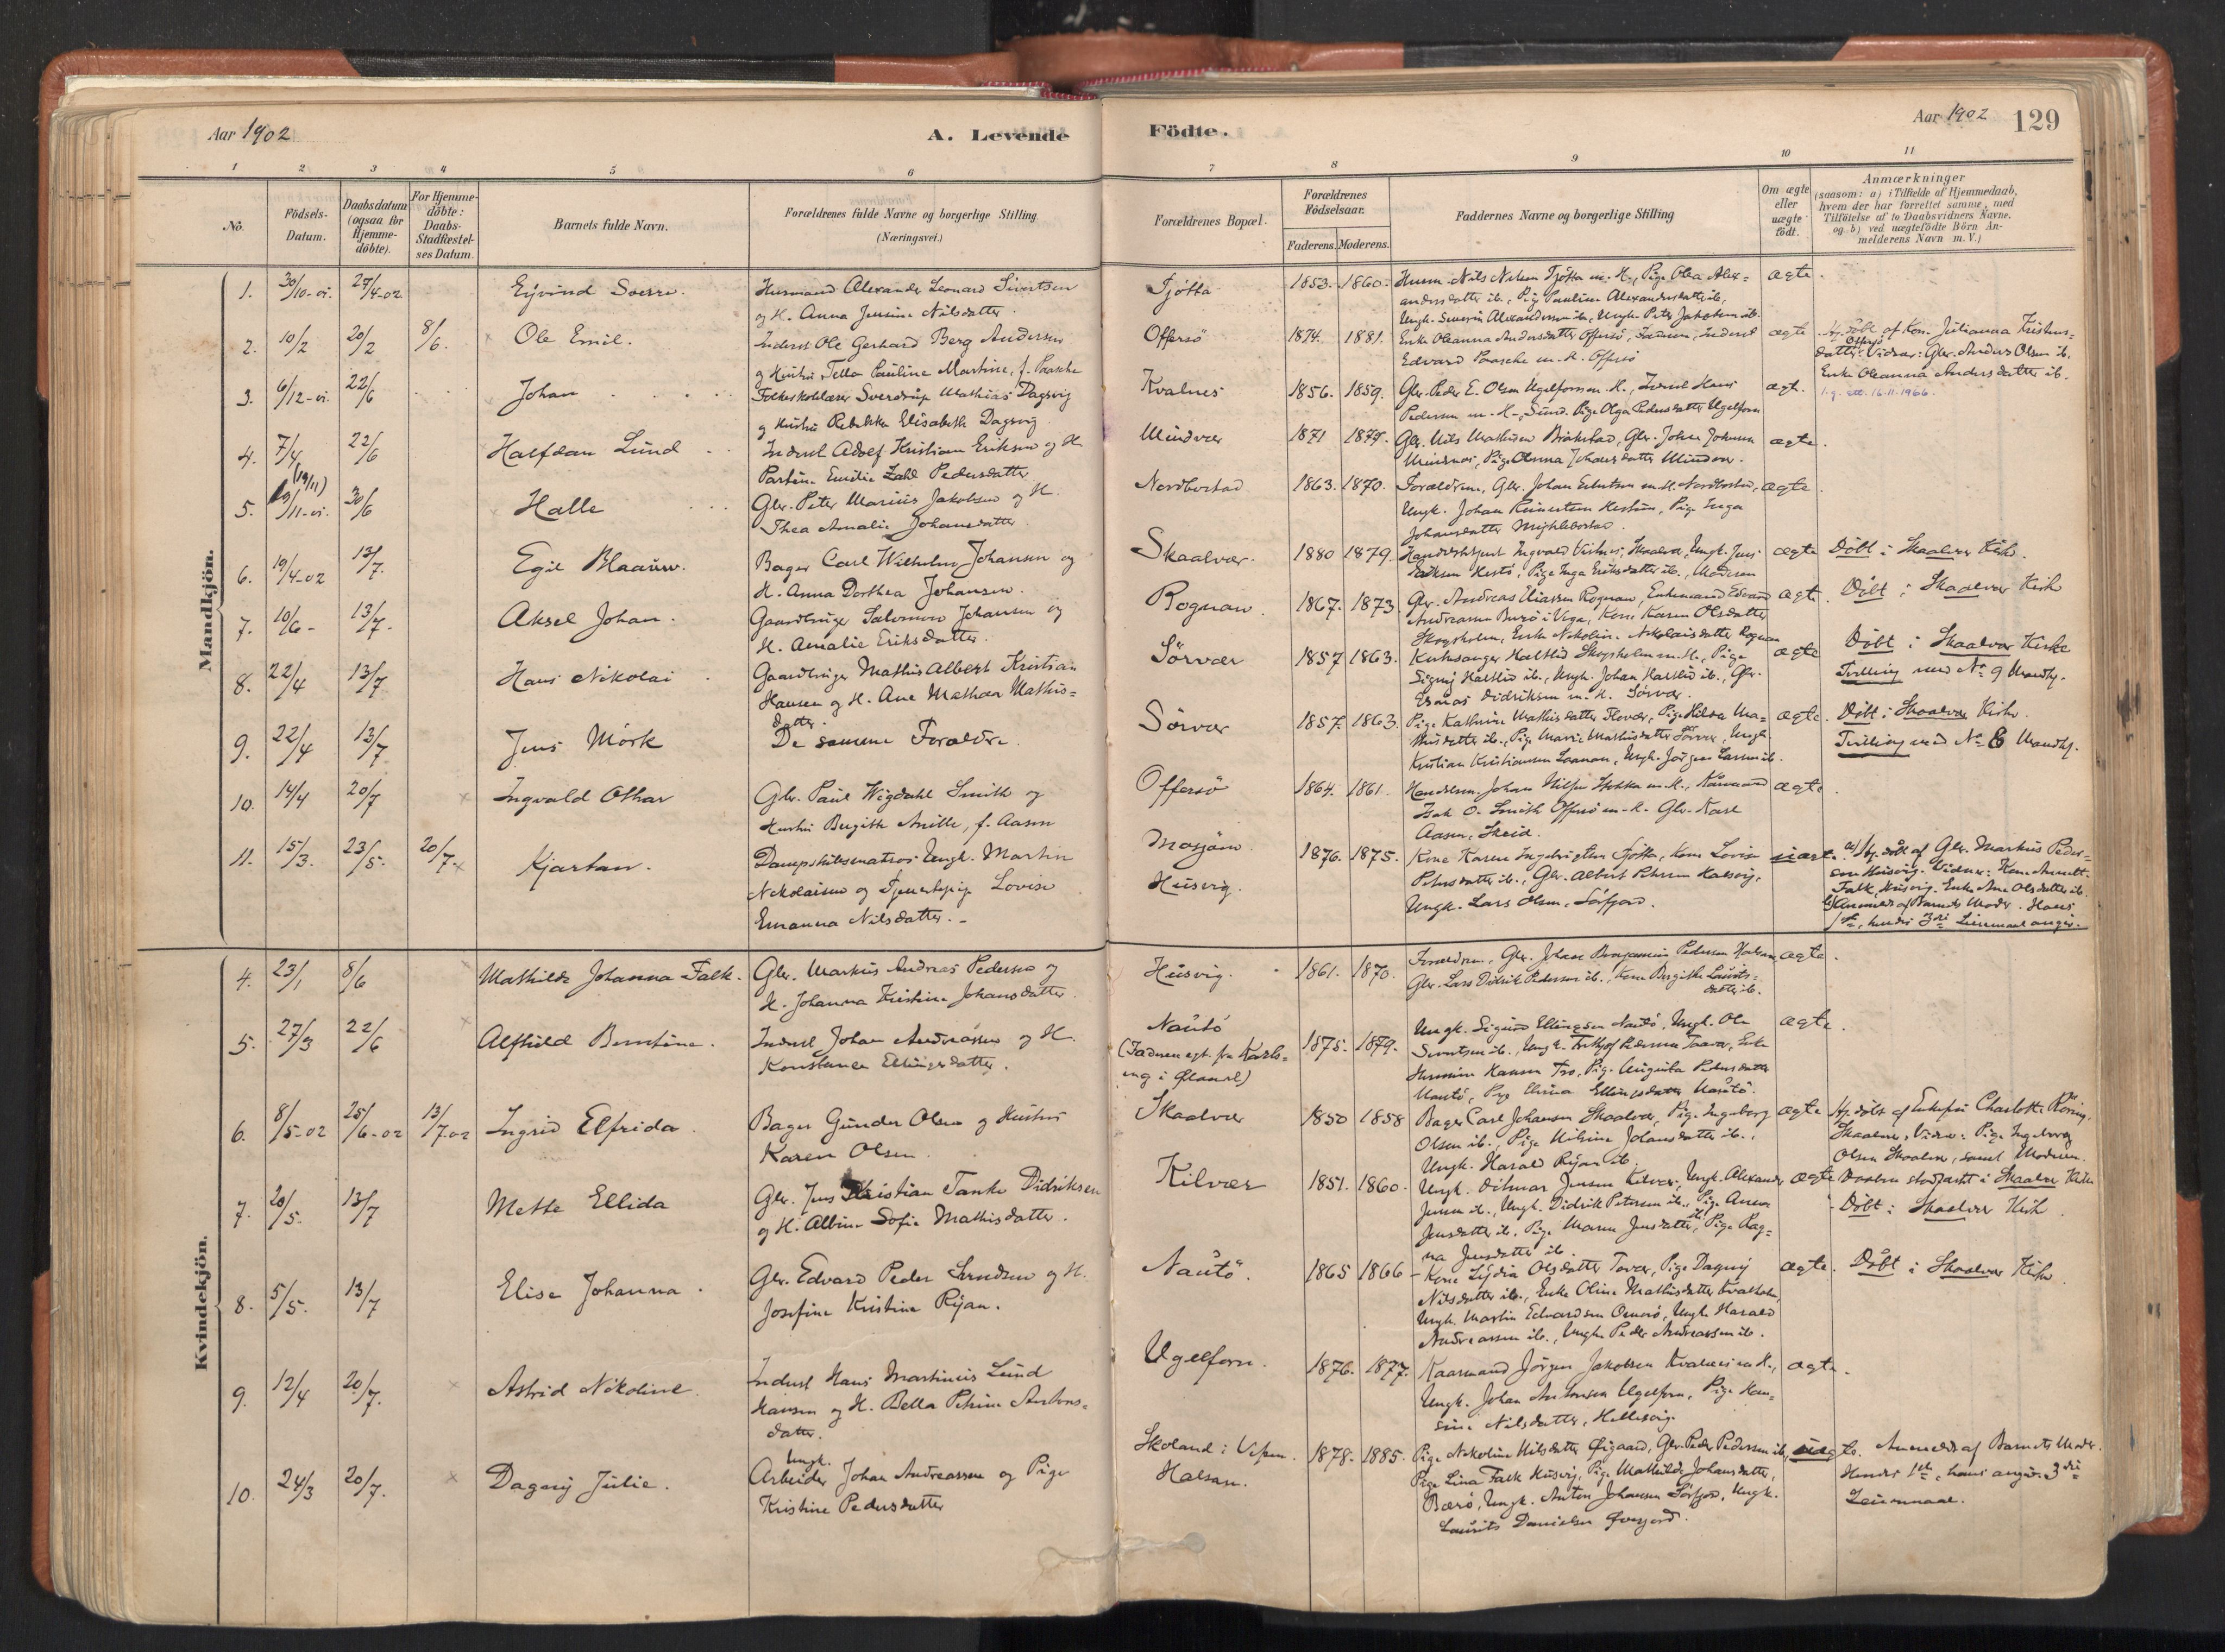 Aar 1902
A. Levende
Födte.
Aar 1902
129
1 2 3 4 5 6 7 8 9 10 11
No.
Födsels-
Datum.
Daabsdatum
(ogsaa for
Hjemme-
döbte).
For Hjemme-
döbte:
Daabs-
Stadfæstel-
ses Datum.
Barnets fulde Navn.
Forældrenes fulde Navne og borgerlige Stilling
(Næringsvei.)
Forældrenes Bopæl.
Forældrenes
Födselsaar.
Faderens. Moderens.
Faddernes Navne og borgerlige Stilling
Om ægte
eller
uægte
födt.
Anmærkninger
(saasom: a) i Tilfælde af Hjemmedaab,
hvem der har forrettet samme, med
Tilföielse af to Daabsvidners Navne.
og b) ved uægtefödte Börn An-
melderens Navn m. V.)
Mandkjön.
1. 30/10-01. 27/4-02 Eyvind Sverre.
Husmand Alexander Leonard Sivertsen
og H. Anna Jensine Nilsdatter.
Tjötta 1853. 1860.
Husm. Nils Nilsen Tjötta m. H., Pige Olea Alex-
andersdatter ib., Pige Pauline Alexandersdatter ib.,
Ungk. Severin Alexandersen ib., Ungk. Peter Jakobsen ib.
ægte.
2. 10/2 20/2 8/6. Ole Emil.
Inderst Ole Gerhard Berg Andersen
og Hustru Tella Pauline Martine, f. Paasche
Offersö 1874. 1881.
Enke Oleanna Andersdatter Offersö, Faderen, Inderst
Edvard Paasche m. H. Offersö
ægte
Hj. döbt af Kone Julianna Kristens-
datter Offersö Vidner: Gbr. Anders Olsen ib.
Enke Oleanna Andersdatter ib.
3. 6/12-01. 22/6 Johan
Folkeskolelærer Sverdrup Mathias Dagsvig
og Hustru Rebekka Elisabeth Dagsvig
Kvalnes 1856. 1859.
Gbr. Peder E. Olsen Ugelforen m. H., Inderst Hans
Pedersen m. H., Sund. Pige Olga Pedersdatter Ugelforn
ægt.
1.g. att. 16-11-1966.
4. 7/4 22/6 Halfdan Lund
Inderst Adolf Kristian Eriksen og H.
Partine Emilie Zahl Pedersdatter
Mindvær 1871 1874.
Gbr. Nils Mathisen Brækstad, Gbr. Johan Johnsen
Mindnes, Pige Olanna Johansdatter Mindvær.
ægte.
5. (19/11) 19/11-01. 30/6 Halle
Gbr. Peter Marius Jakobsen og H.
Thea Amalie Johansdatter
Nordbostad 1863. 1870.
Forældrene, Gbr. Johan Eilertsen m. H. Nordbostad,
Ungk. Johan Reinertsen Hestun, Pige Inga
Johansdatter Meghlebostad.
ægte.
6. 19/4-02 13/7. Egil Blaauw.
Bager Carl Wilhelm Johansen og
H. Anna Dorthea Johansen.
Skaalvær. 1880 1879.
Handelsbetjent Ingvald Vistnes, Skaalvær, Ungk. Jens
Eriksen Hestö, Pige Inga Eriksdatter ib., Moderen
ægte
Döbt i Skaalvær Kirke.
7. 10/6- 13/7. Aksel Johan.
Gaardbruger Salomon Johansen og
H. Amalie Eriksdatter.
Rognan. 1867. 1873.
Gbr. Andreas Eliassen Rognan, Enkemand Edvard
Andreassen Burö i Vega, Kone Karen Olsdatter
Skogsholm, Enke Nikoline Nikolaisdatter Rognan
ægte.
Döbt i Skaalvær Kirke
8. 22/4 13/7 Hans Nikolai
Gaardbruger Mathis Albert Kristian
Hansen og H. Ane Mathea Mathis-
datter.
Sörvær 1857 1863.
Kirkesanger Hartlid Skogsholm m. H., Pige
Signy Hartlid ib., Ungk. Johan Hartlid ib., Gbr.
Didriksen m. H. Sörvær.
ægte
Döbt i Skaalvær Kirke
Tvilling med No 9 Mandkj.
9. 22/4 13/7 Jens Mörk
De samme Forældre.
Sörvær 1857. 1863.
Pige Kathrine Mathisdatter Flovær, Pige Hilda Ma-
thisdatter ib., Pige Marie Mathisdatter Sörvær, Ungk.
Kristian Kristiansen Laanan, Ungk. Jörgen Larsen ib.
ægte.
Döbt i Skaalvær Kirke.
Tvilling med No 8 Mandkj.
10. 14/4 20/7 Ingvald Othar
Gbr. Paul Wigdahl Smith og
Hustru Birgitte Anille, f. Aasen
Offersö 1864. 1861.
Handelsm. Johan Nilsen m. H., Kaarmand
Isak O. Smith Offersö m. H. Gbr. Karl
Aasen, Skeid.
ægte.
11. 15/3. 23/5. 20/7. Kjartan.
Dampskibsmatros Ungk. Martin
Nikolaisen og Tjenestepige Lovise
Emanna Nilsdatter.
Mosjöen
Husvig. 1876. 1875.
Kone Karen Ingebrigtsen Tjötta, Kone Lovise
Petersdatter ib., Gbr. Albert Petersen Halsvig,
Ungk. Lars Olsen, Sörfjord.
uægte.
a) Hj. döbt af Gbr. Markus Peder-
sen Husvig. Vidner: Kone Annette
Falk Husvig. Enke Ane Olsdatter ib.
b) Anmeldt af Barnets Moder. Hans
1ste, hendes 3die Leiermaal angiv.
Kvindekjön.
4. 23/1 8/6 Mathilde Johanna Falk.
Gbr. Markus Andreas Pedersen og
H. Johanna Kristine Johansdatter.
Husvig. 1861. 1870.
Forældrene, Gbr. Johan Benjamin Pedersen Halsan,
Gbr. Lars Didrik Pedersen ib., Kone Birgitte Laurits-
datter ib.
ægte.
5. 27/3 22/6 Alfhild Berntine.
Inderst Johan Andreassen og H.
Konstance Ellingsdatter.
Nautö
(Faderen egt. fra Karls-
eng i Øland) 1875. 1879.
Ungk. Sigurd Ellingsen Nautö, Ungk. Ole
Sivertsen ib., Ungk. Frithjof Pedersen Taavær, Enke
Hansen Tro, Pige Augusta Pedersdatter
Nautö, Pige Elina Ellingsdatter Nautö.
ægte.
6. 8/5-02 25/6-02 13/7-02 Ingrid Elfrida
Bager Gunder Olsen og Hustru
Karen Olsen
Skaalvær 1850 1858
Bager Carl Johansen Skaalvær, Pige Ingeborg
Olsen ib., Pige Wilhine Johansdatter ib.,
Ungk. Harald Ryan ib.
ægte
Hj. döbt af Enkefru Charlotte Röring,
Skaalvær, Vidner: Pige Ingeborg
Olsen Skaalvær, samt Moderen.
Daaben stadfæstet i Skaalvær Kirke
7. 20/5. 13/7 Mette Ellida
Gbr. Jens Kristian Tanke Didriksen
og H. Albine Sofie Mathisdatter.
Kilvær 1851. 1860.
Ungk. Ditmar Jensen Kilvær, Ungk. Alexander
Jensen ib., Ungk. Didrik Petersen ib., Pige Anna
Jensdatter ib. Pige Maren Jensdatter ib., Pige Rag-
na Jensdatter ib.
ægte
Döbt i Skaalvær Kirke.
8. 5/5. 13/7 Elise Johanna.
Gbr. Edvard Peder Svendsen og H.
Josefine Kristine Ryan.
Nautö. 1865 1866
Kone Lydia Olsdatter Tovær, Pige Dagny
Nilsdatter ib., Enke Oline Mathisdatter Kvalholm,
Ungk. Martin Edvardsen Ormsö, Ungk. Harald
Andreassen ib., Ungk. Peder Andreassen ib.
ægte.
Döbt i Skaalvær Kirke
9. 12/4 20/7. Astrid Nikoline
Inderst Hans Martinius Lund
Hansen og H. Bella Petrine Antons-
datter.
Ugelforn. 1876. 1877.
Kaarmand Jörgen Jakobsen Kvalnes m. H.,
Ungk. Johan Antonsen Ugelforn, Pige Han-
sine Nilsdatter, Hellesvig.
ægte.
10. 24/3 20/7. Dagny Julie.
Ungk.
Arbeider Johan Andreassen og Pige
Kristine Pedersdatter
Skoland i Vefsen.
Halsan. 1878. 1885.
Pige Nikoline Nilsdatter Øigaard, Gbr. Peder Pedersen ib.,
Pige Lina Falk Husvig, Pige Mathilde Johansdatter,
Bærö, Ungk. Anton Johansen Sörfjord, Ungk.
Laurits Danielsen Øverjord.
uægte.
Anmeldt af Barnets Moder.
Hendes 1ste, hans angiv. 3die
Leiermaal.